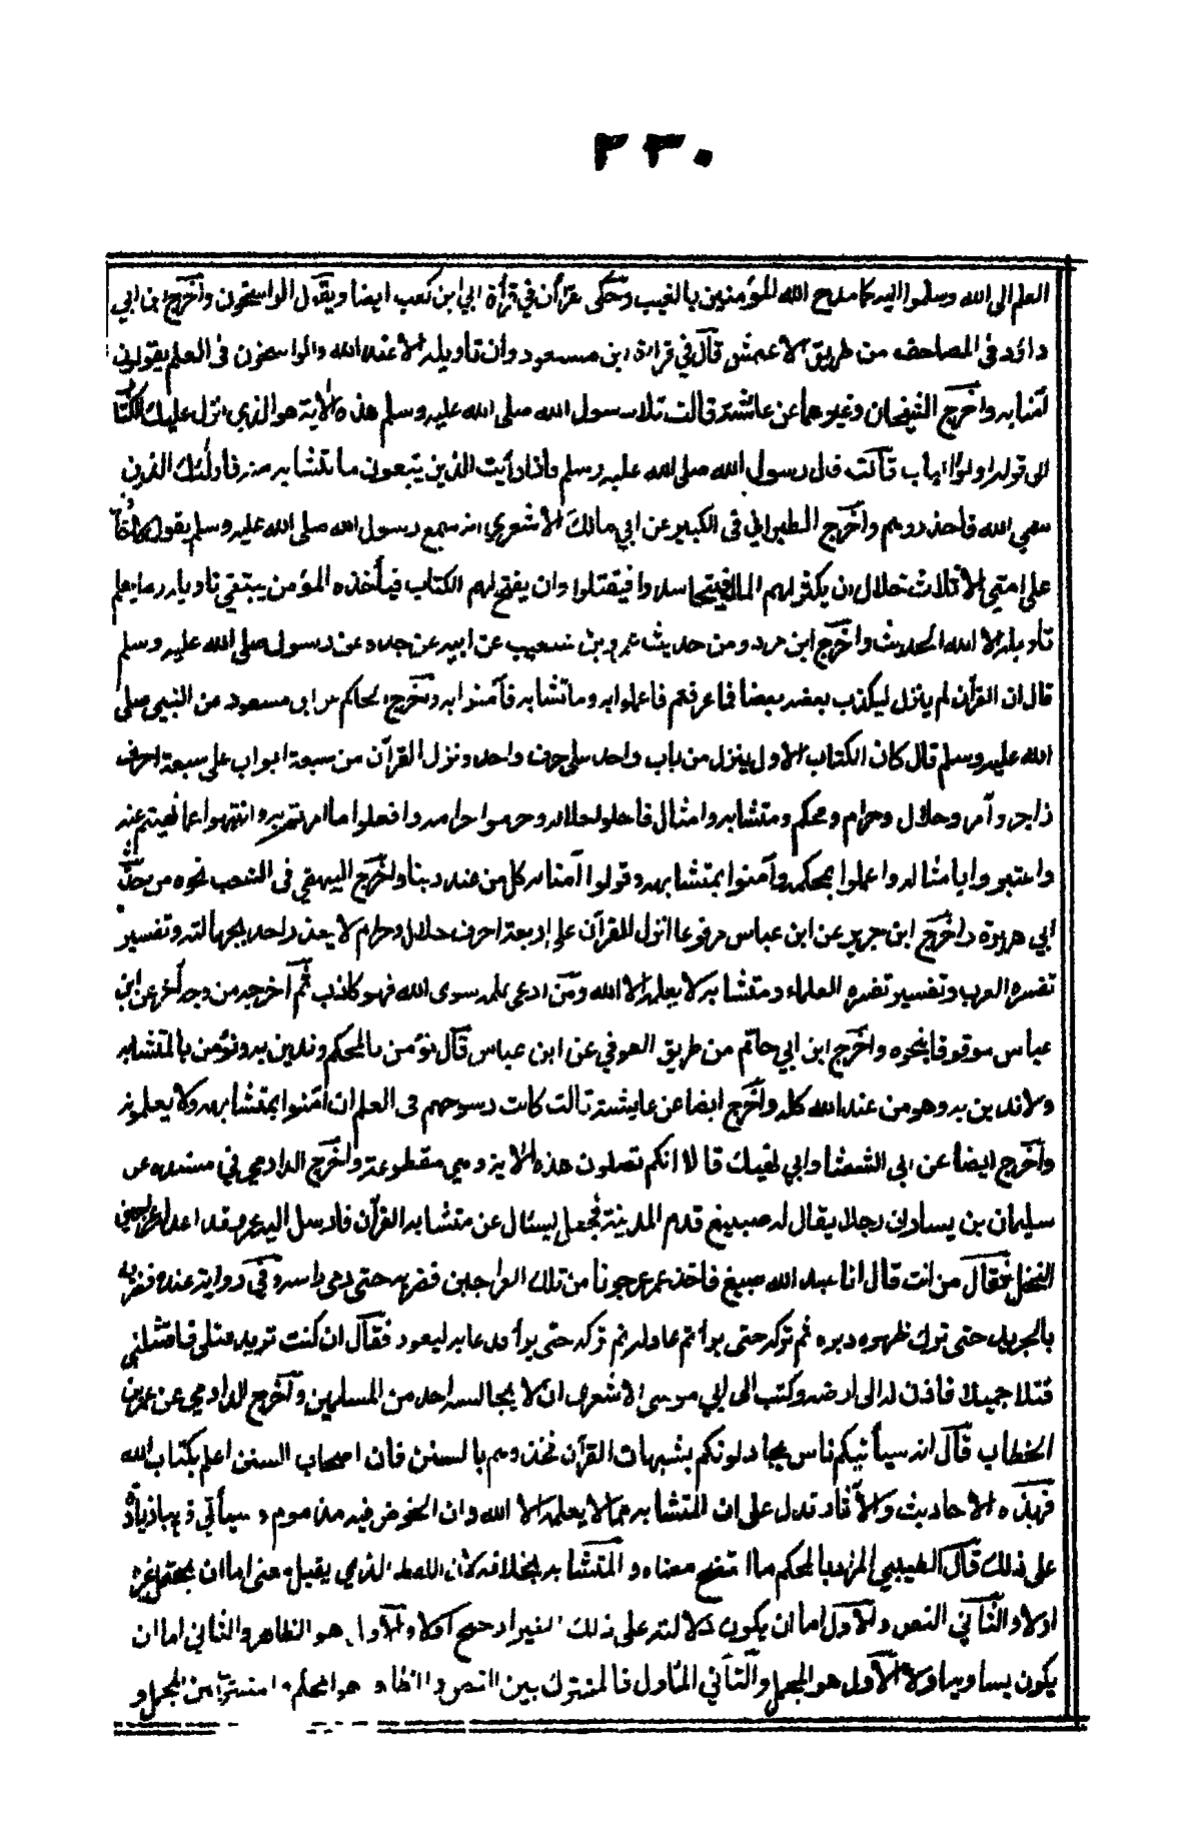 ٣٣٠
العلم الى الله وسلموا اليه كما مدح الله المؤمنين بالغيب وحكى الفرأ ان في قرأة ابي ابن كعب ايضا ويقول الراسخون وأخرج ابن ابي
داؤد فى المصاحف من طريق الاعمش قال في قراءة ابن مسعود وان تاويله الا عند الله والراسخون فى العلم يقولون
آمنا به واخرج الشيخان وغيرهما عن عائشة قالت تلا رسول الله صلى الله عليه وسلم هذه الأية هو الذي انزل عليك الكتاب
الى قوله اولوا الباب قالت قال رسول الله صلى الله عليه وسلم فاذا رأيت الذين يتبعون ما تشابه منه فاولئك الذين
سمي الله فاحذروهم وأخرج الطبراني فى الكبير عن ابي مالك الاشعري انه سمع رسول الله صلى الله عليه وسلم يقول لا اخاف
على امتي الا ثلاث خلال ان يكثر لهم المال فيتحاسدوا فيقتلوا وان يفتح لهم الكتاب فيأخذه المؤمن يبتغي تاويله وما يعلم
تأويله الا الله الحديث وأخرج ابن مردويه من حديث عمرو بن شعيب عن ابيه عن جده عن رسول صلى الله عليه وسلم
قال ان القرآن لم ينزل ليكذب بعضه بعضا فما عرفتم فاعملوا به وما تشابه فآمنوا به وأخرج الحاكم عن ابن مسعود عن النبي صلى
الله عليه وسلم قال كان الكتاب الاول ينزل من باب واحد على حرف واحد ونزل القرآن من سبعة ابواب على سبعة احرف
زاجر وآمر وحلال وحرام ومحكم ومتشابه وامثال فاحلوا حلاله وحرموا حرامه وافعلوا ما امرتم به وانتهوا عما نهيتم عنه
واعتبروا بامثاله واعملوا بمحكمه وآمنوا بمتشابهه وقولوا آمنا به كل من عند ربنا وأخرج البيهقي فى الشعب نحوه من حديث
أبي هريرة وأخرج ابن جرير عن ابن عباس مرفوعا انزل القرآن على اربعة احرف حلال وحرام لا يعذر احد بجهالته وتفسير
تفسره العرب وتفسير تفسره العلماء ومتشابه لا يعلمه الا الله ومن ادعى علمه سوى الله فهو كاذب ثم أخرجه من وجه آخر عن ابن
عباس موقوفا بنحوه وأخرج ابن ابي حاتم من طريق العوفي عن ابن عباس قال نؤمن بالمحكم وندين به ونؤمن بالمتشابه
ولا ندين به وهو من عند الله كله وأخرج ايضا عن عايشة قالت كانت رسوخهم فى العلم ان آمنوا بمتشابهه ولا يعلمونه
وأخرج ايضا عن ابى الشعثا وابي نهيك قالا انكم تصلون هذه الاية وهي مقطوعة وأخرج الدارمي في مسنده عن
سليمان بن يسار ان رجلا يقال له صبيغ قدم المدينة فجعل يسئال عن متشابه القرآن فارسل اليه عمر وقد اعد له عراجين
النخل فقال من انت قال انا عبد الله صبيغ فاخذ عمر عرجونا من تلك العراجين فضربه حتى دمى راسه وفى رواية عنده فضربه
بالجريد حتى ترك ظهره دبره ثم تركه حتى برأ ثم عاد له ثم تركه حتى برأ فدعا به ليعود فقال ان كنت تريد قتلى فاقتلني
قتلا جميلا فاذن له الى ارضه وكتب الى ابي موسى الاشعري ان لا يجالسه احد من المسلمين وأخرج الدارمي عن عمر بن
الخطاب قال انه سيأتيكم ناس يجادلونكم بشبهات القرآن فخذوهم بالسنن فان اصحاب السنن اعلم بكتاب الله
فهذه الاحاديث والآثار تدل على ان المتشابه مما لا يعلمه الا الله وان الخوض فيه مذموم وسيأتي قريبا زيادة
على ذلك قال الطيبي المراد بالمحكم ما اتضح معناه والمتشابه بخلافه لان اللفظ الذي يقبل معنى اما ان يحتمل غيره
اولا والثاني النص والاول اما ان يكون دلالته على ذلك الغير ارجح اولا والاول هو الظاهر والثاني اما ان
يكون يساويه اولا الاول هو المجمل والثاني المأول فالمشترك بين النص والظاهر هو المحكم والمشترك بين المجمل و